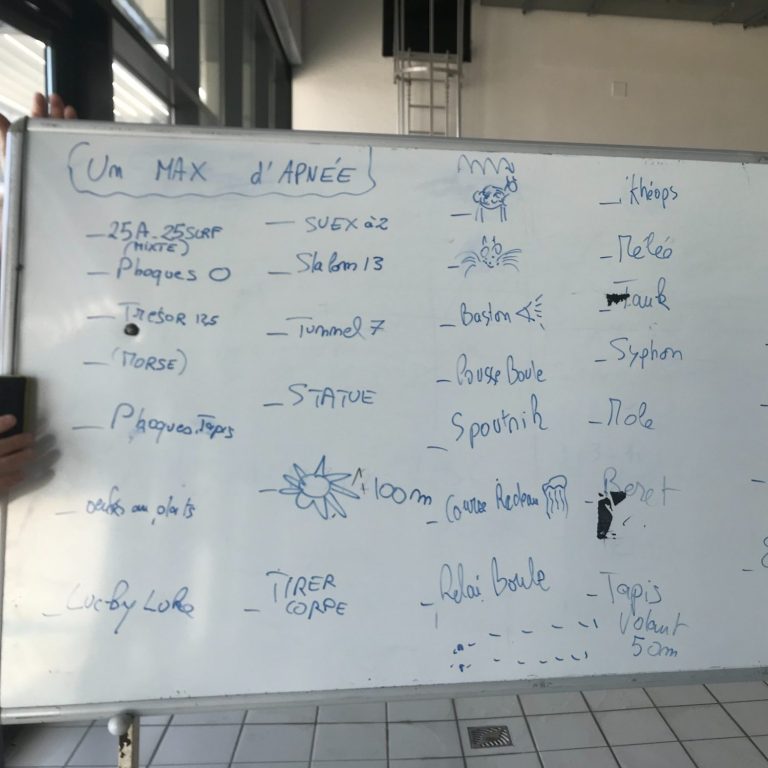 Un MAX d'APNÉE
_ 25A_25SURF
(MIXTE)
_ Phoques O
_ TRESOR 125
_ (MORSE)
_ Phoques Tapis
_ oeufs au plats
_ Lucky Luke
_ SUEX à 2
_ Slalom 13
_ Tunnel 7
_ STATUE
_ 100m
_ TIRER
CORPE
_ Baston
_ Pousse Boule
_ Spoutnik
_ Course Radeau
_ Relai Boule
_ Khéops
_ Météo
_ Tank
_ Syphon
_ Mole
_ Beret
_ Tapis
Volant
50m